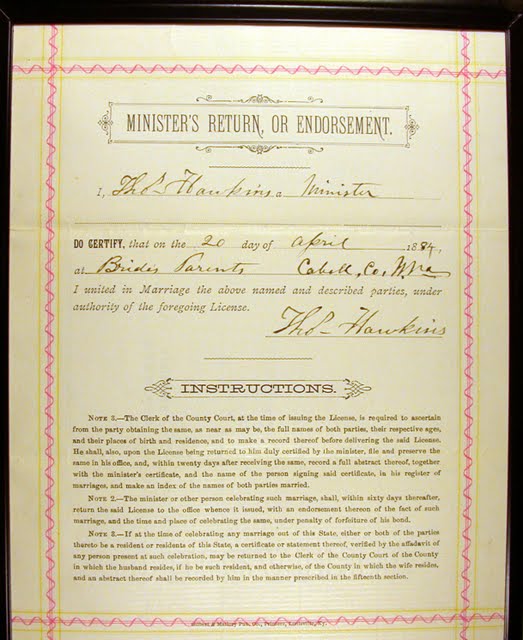 MINISTER'S RETURN, OR ENDORSEMENT.
I, Thos Hawkins a Minister
DO CERTIFY, that on the 20 day of April 1884,
at Brides Parents Cabell, Co, W. Va
I united in Marriage the above named and described parties, under
authority of the foregoing License.
Thos Hawkins
INSTRUCTIONS.
NOTE 3.—The Clerk of the County Court, at the time of issuing the License, is required to ascertain
from the party obtaining the same, as near as may be, the full names of both parties, their respective ages,
and their places of birth and residence, and to make a record thereof before delivering the said License.
He shall, also, upon the License being returned to him duly certified by the minister, file and preserve the
same in his office, and, within twenty days after receiving the same, record a full abstract thereof, together
with the minister's certificate, and the name of the person signing said certificate, in his register of
marriages, and make an index of the names of both parties married.
NOTE 2.—The minister or other person celebrating such marriage, shall, within sixty days thereafter,
return the said License to the office whence it issued, with an endorsement thereon of the fact of such
marriage, and the time and place of celebrating the same, under penalty of forfeiture of his bond.
NOTE 3.—If at the time of celebrating any marriage out of this State, either or both of the parties
thereto be a resident or residents of this State, a certificate or statement thereof, verified by the affidavit of
any person present at such celebration, may be returned to the Clerk of the County Court of the County
in which the husband resides, if he be such resident, and otherwise, of the County in which the wife resides,
and an abstract thereof shall be recorded by him in the manner prescribed in the fifteenth section.